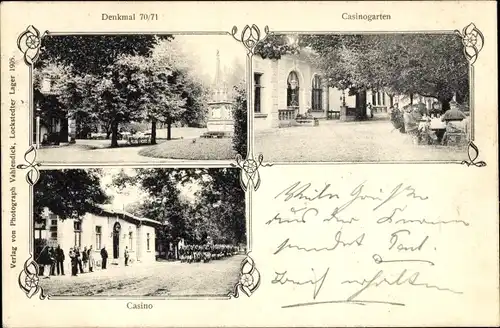 Denkmal 70/71
Casinogarten
Verlag von Photograph Vahlendick, Lockstedter Lager 1905.
Viele Grüße
aus der
sendet Paul
Brief erhalten
Casino